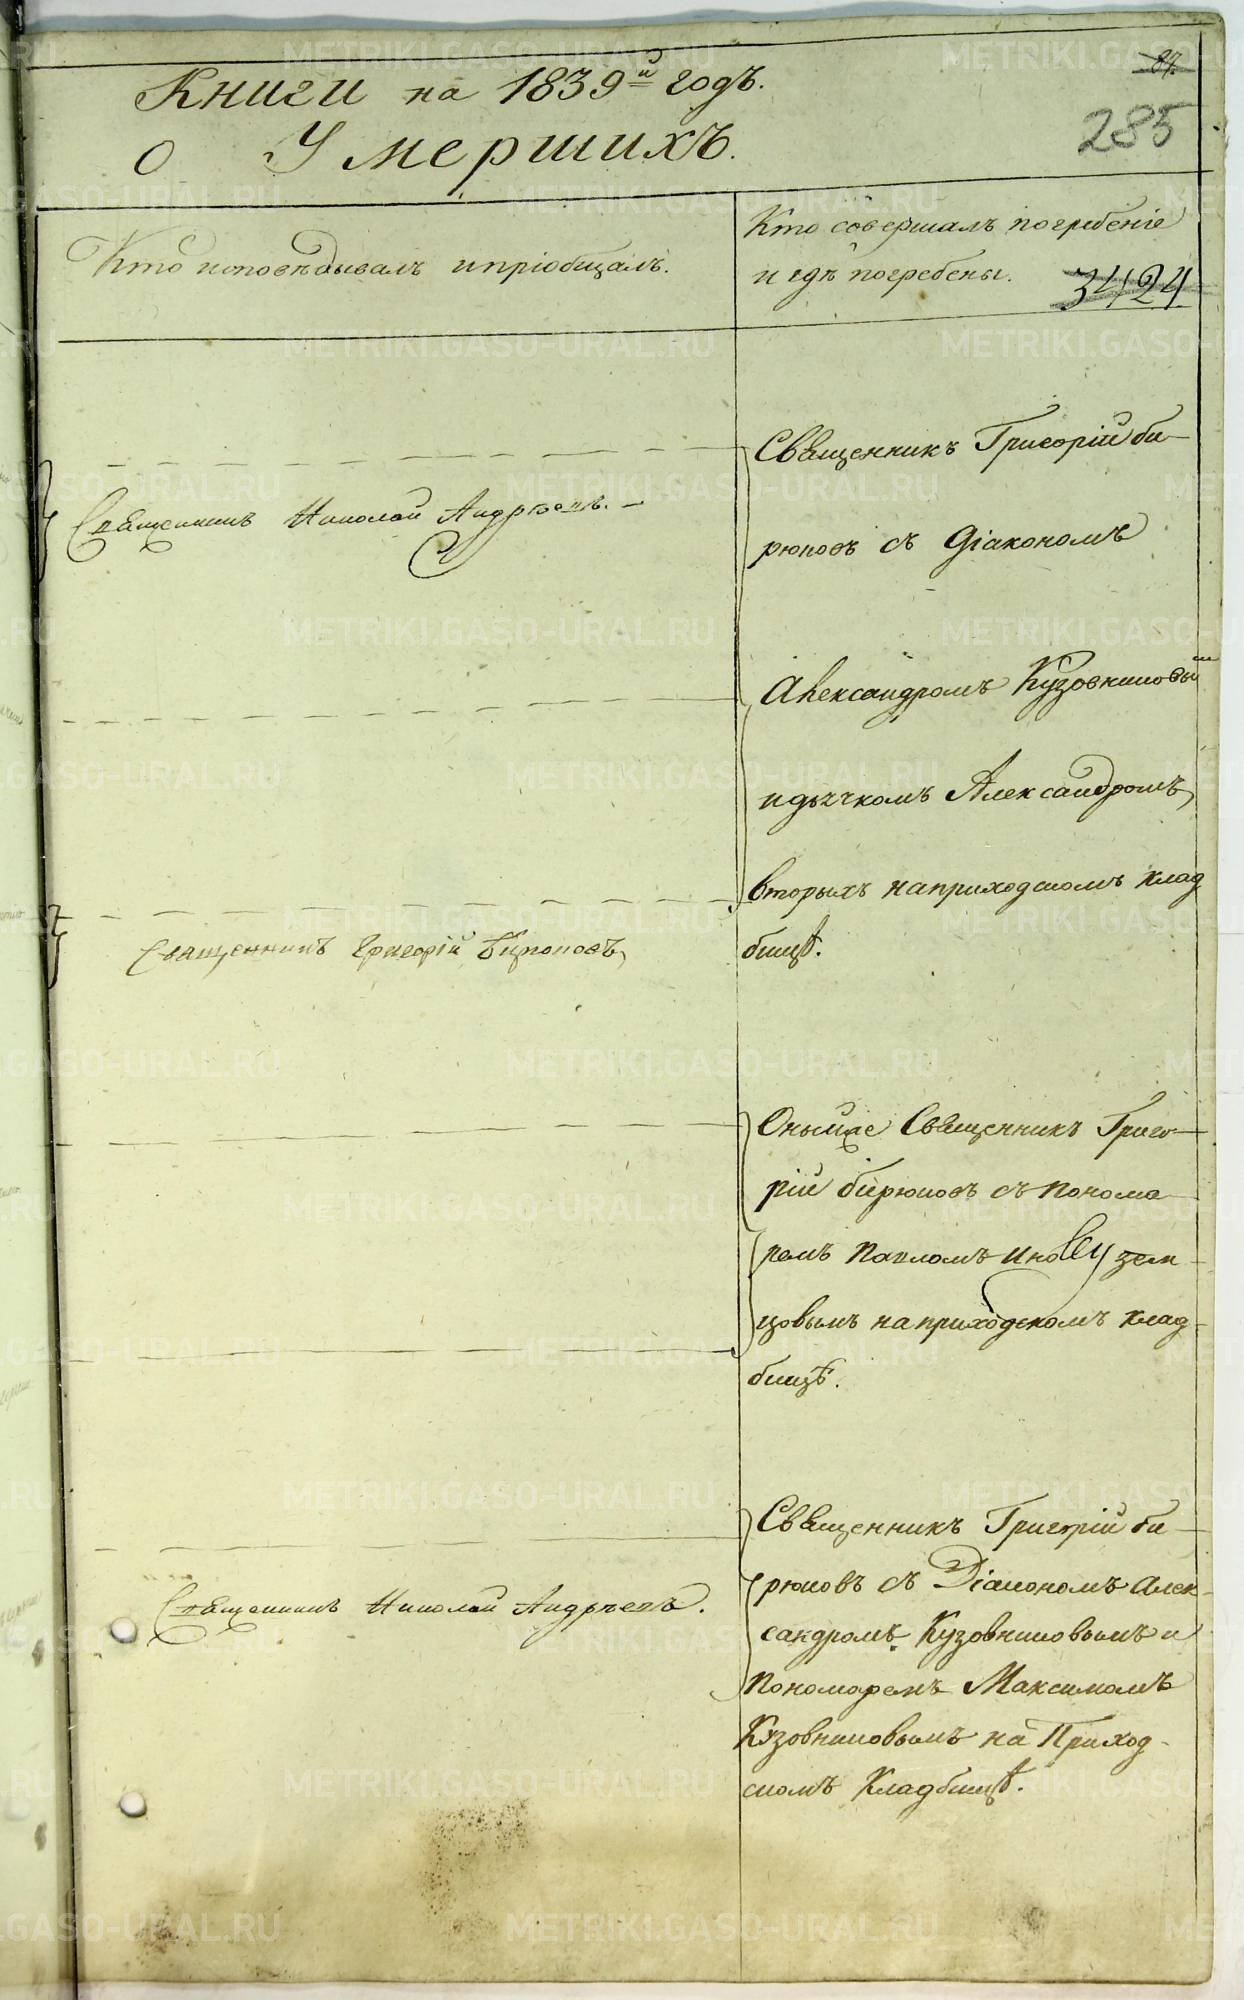 87.
Книги на 1839й годъ.
285
О Умершихъ.
Кто исповѣдывалъ и пріобщалъ.
Кто совершалъ погребеніе
и гдѣ погребены.
3424
Священникъ Григорій Би-
Священникъ Николай Андрѣевъ.
рюковъ съ Діакономъ
Александромъ Кузовниковым
и дьячкомъ Александромъ,
вторыхъ на приходскомъ клад
Священникъ Григорій Бирюковъ,
бищѣ.
Оныйже Священникъ Григо-
рій Бирюковъ съ понома-
ремъ Павломъ зем-
цовымъ на приходскомъ клад-
бищѣ.
Священникъ Григорій Би-
рюковъ съ Діакономъ Алек-
Священникъ Николай Андрѣевъ.
сандромъ Кузовниковымъ и
Пономаремъ Максимомъ
Кузовниковымъ на Приход-
скомъ Кладбищѣ.
METRIKI.GASO-URAL.RU